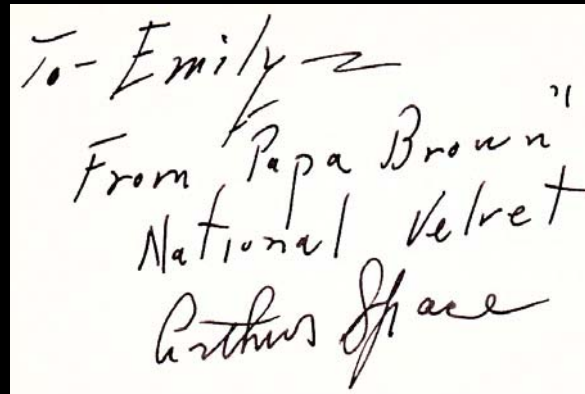 To - Emily
From "Papa Brown"
National Velvet
Arthur Space